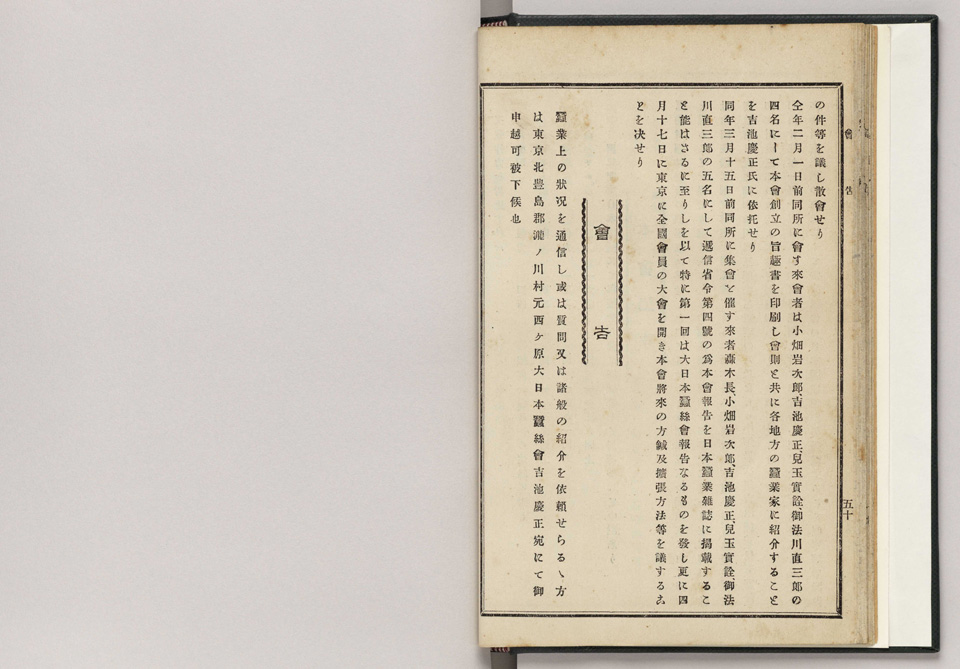 會告
五十
の件等を議し散會せり
仝年二月一日前同所に會す來會者は小畑岩次郎、吉池慶正、兒玉實詮、御法川直三郎の
四名にして本會創立の旨趣書を印刷し會則と共に各地方の蠶業家に紹介すること
を吉池慶正氏に依托せり
同年三月十五日前同所に集會を催す來者轟木長、小畑岩次郎、吉池慶正、兒玉實詮、御法
川直三郎の五名にして遞信省令第四號の爲本會報告を日本蠶業雜誌に掲載するこ
と能はさるに至りしを以て特に第一回は大日本蠶絲會報告なるものを發し更に四
月十七日に東京に全國會員の大會を開き本會將來の方鍼及擴張方法等を議するこ
とを决せり
會告
蠶業上の狀况を通信し或は質問又は諸般の紹介を依頼せらるゝ方
は東京北豊島郡瀧ノ川村元西ケ原大日本蠶絲會吉池慶正宛にて御
申越可被下候也